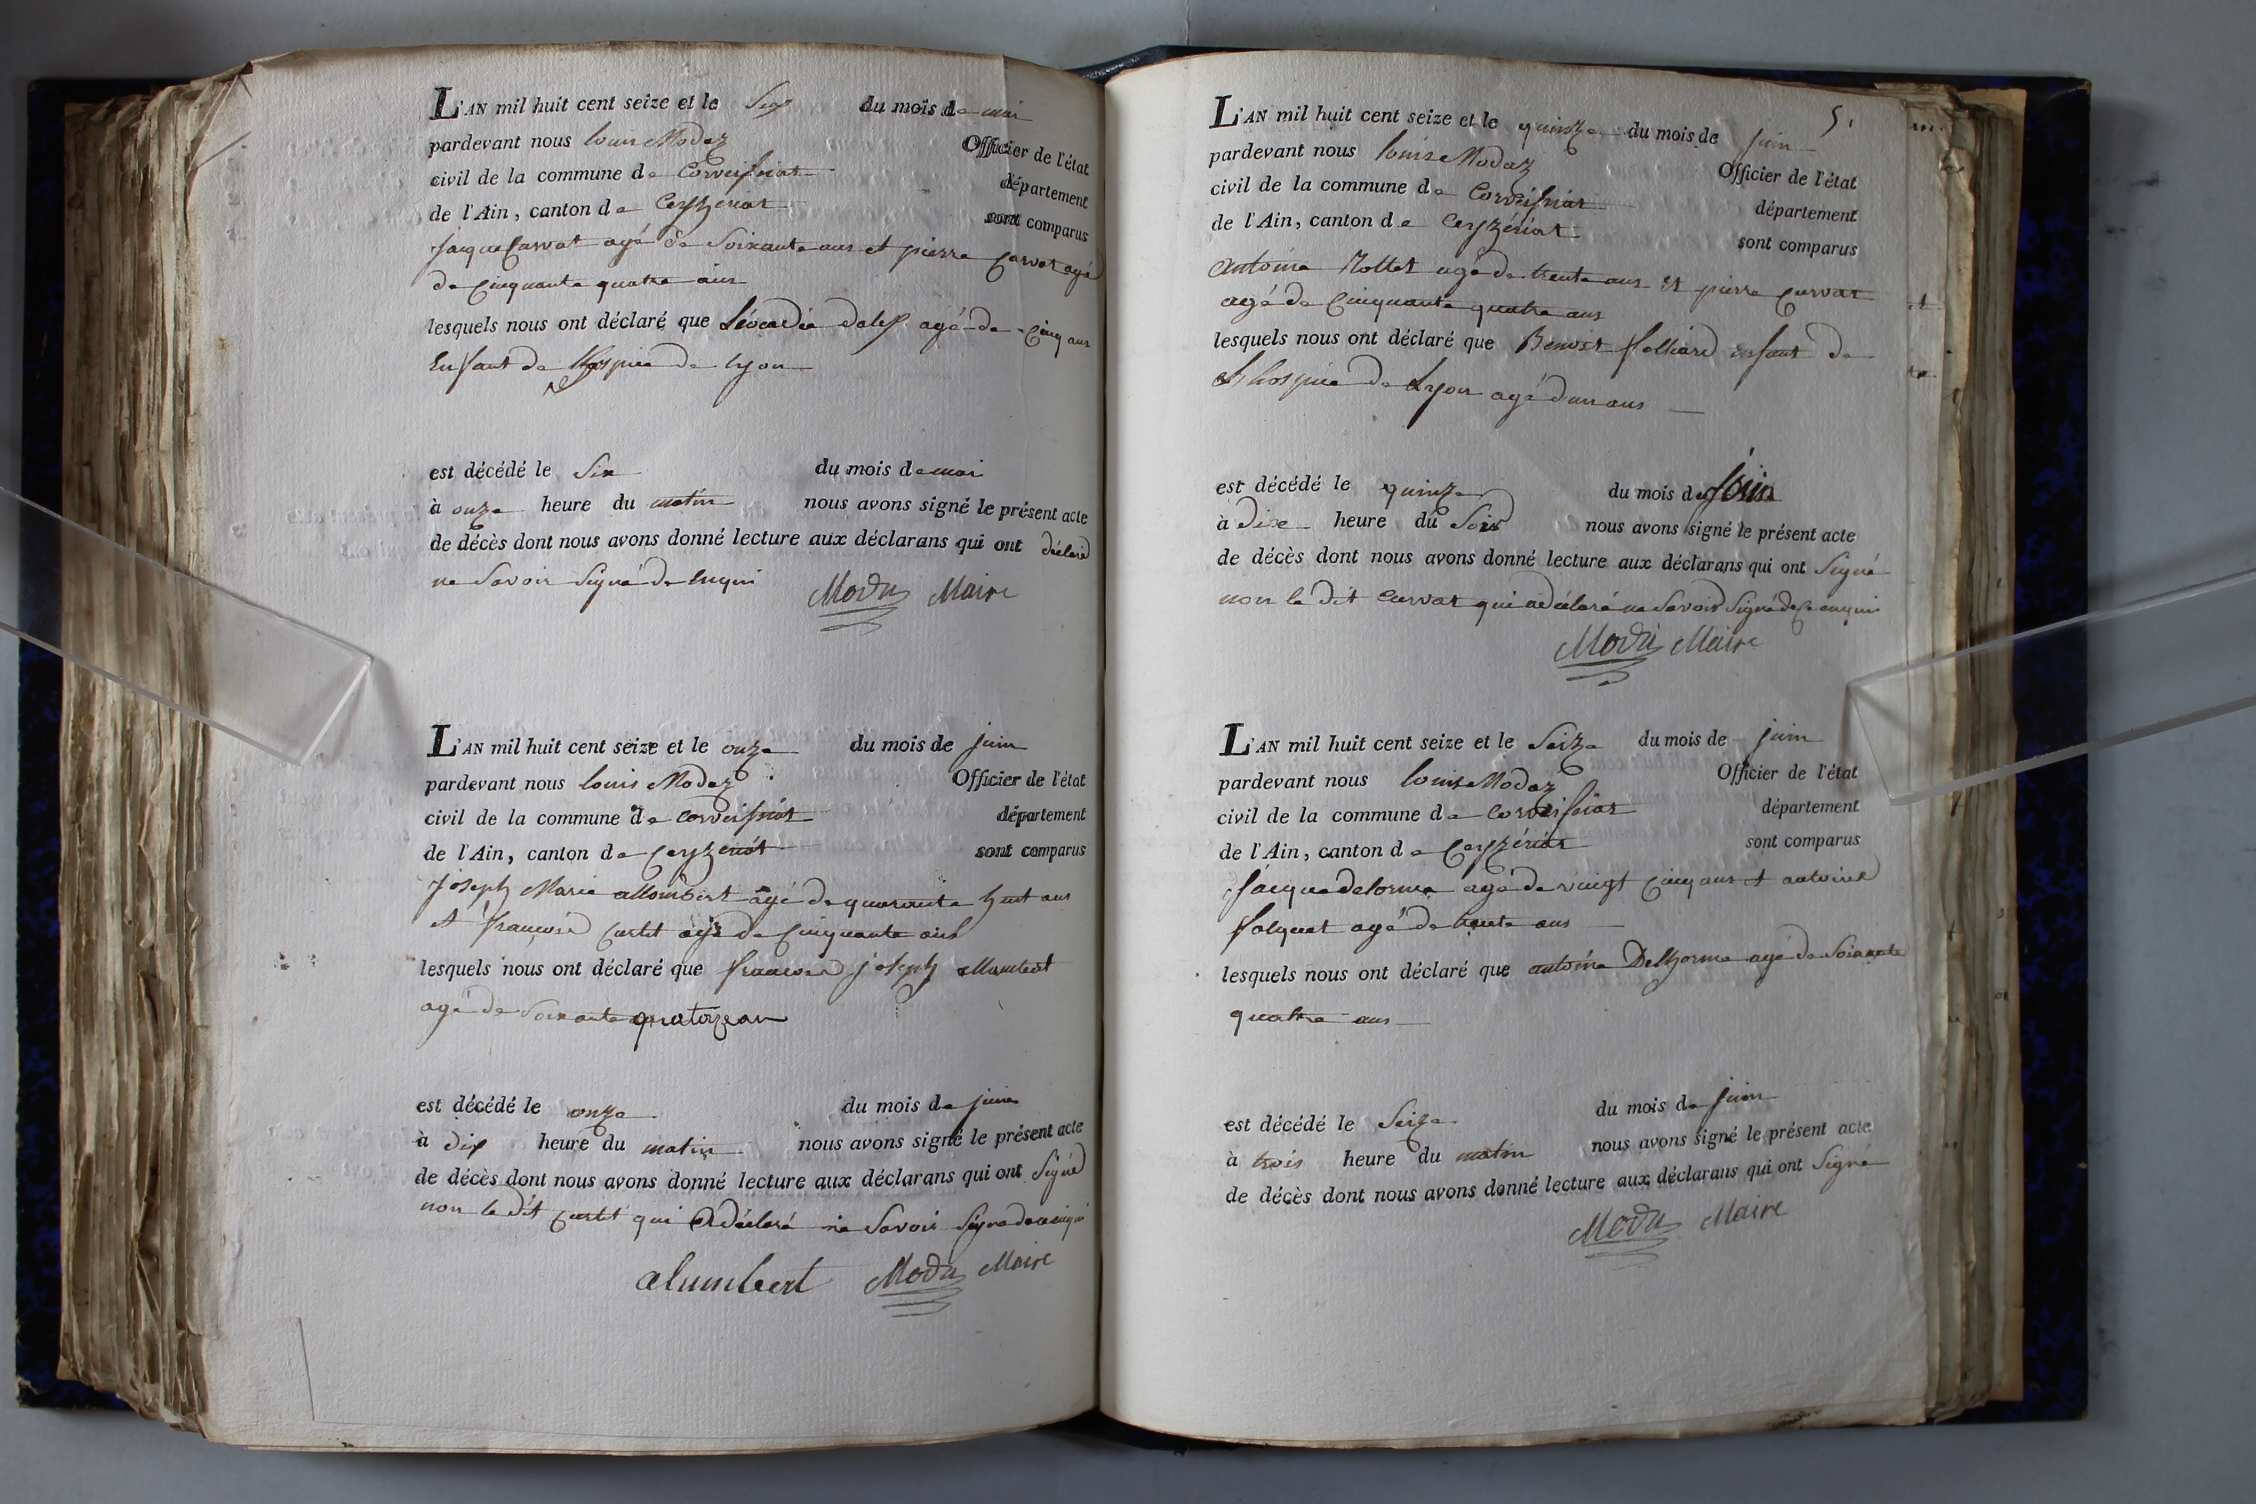 L'AN mil huit cent seize et le Six du mois de mai
pardevant nous louis Modaz Officier de l'état
civil de la commune de Corveissiat département
de l'Ain, canton de Ceyzériat sont comparus
jacque Carvat agé de Soixante ans et pierre Carvat agé
de Cinquante quatre ans
lesquels nous ont déclaré que Léocadie agé de Cinq ans
Enfant de lhospice de lyon
est décédé le Six du mois de mai
à onze heure du matin nous avons signé le présent acte
de décès dont nous avons donné lecture aux déclarans qui ont déclaré
ne Savoir Signé de Enqui
Modas Maire
L'AN mil huit cent seize et le onze du mois de juin
pardevant nous louis Modaz Officier de l'état
civil de la commune de Corveissiat département
de l'Ain, canton de Ceyzériat sont comparus
joseph Marie allombert agé de quarante huit ans
et françois Curtet agé de Cinquante ans
lesquels nous ont déclaré que françois joseph allumbert
agé de Soixante quatorze an
est décédé le onze du mois de juin
à dix heure du matin nous avons signé le présent acte
de décès dont nous avons donné lecture aux déclarans qui ont Signé
non le dit Curtet qui a déclaré ne Savoir Signé de ce enqui
alumbert Modas Maire
5.
L'AN mil huit cent seize et le quinze du mois de juin
pardevant nous louis Modaz Officier de l'état
civil de la commune de Corveissiat département
de l'Ain, canton de Ceyzériat sont comparus
Antoine Mollet agé de trente ans et pierre Carvat
agé de Cinquante quatre ans
lesquels nous ont déclaré que Benoist enfant de
Lhospice de Lyon agé dun ans
est décédé le quinze du mois de Juin
à dixe heure du Soir nous avons signé le présent acte
de décès dont nous avons donné lecture aux déclarans qui ont Signé
non le dit Carvat qui a déclaré ne Savoir Signé de ce enqui
Modas Maire
L'AN mil huit cent seize et le Seize du mois de juin
pardevant nous louis Modaz Officier de l'état
civil de la commune de Corveissiat département
de l'Ain, canton de Ceyzériat sont comparus
jacque delorme agé de vingt Cinq ans et antoine
folquet agé de trente ans
lesquels nous ont déclaré que antoine Delhorme agé de Soixante
quatre ans
est décédé le Seize du mois de juin
à trois heure du matin nous avons signé le présent acte
de décès dont nous avons donné lecture aux déclarans qui ont Signé
Modas Maire